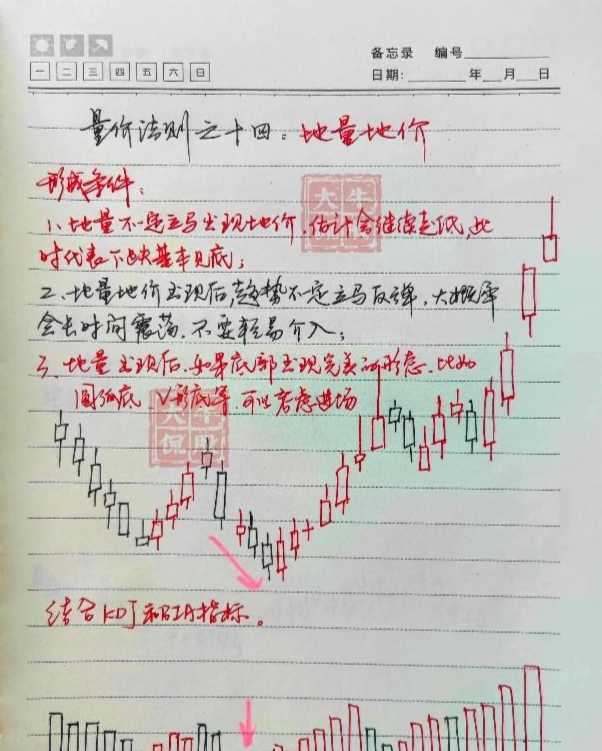 备忘录 编号
一 二 三 四 五 六 日
日期: 年 月 日
量价法则之十四:地量地价
形成条件:
1、地量不一定立马出现地价,估计会继续走低,此
时代表下跌基本见底;
2、地量地价出现后,趋势不一定立马反弹,大概率
会长时间震荡,不要轻易介入;
3、地量出现后,如果底部出现完美的形态,比如
圆弧底、V形底等,可以考虑进场
结合KDJ和BIA指标。
大牛
大牛